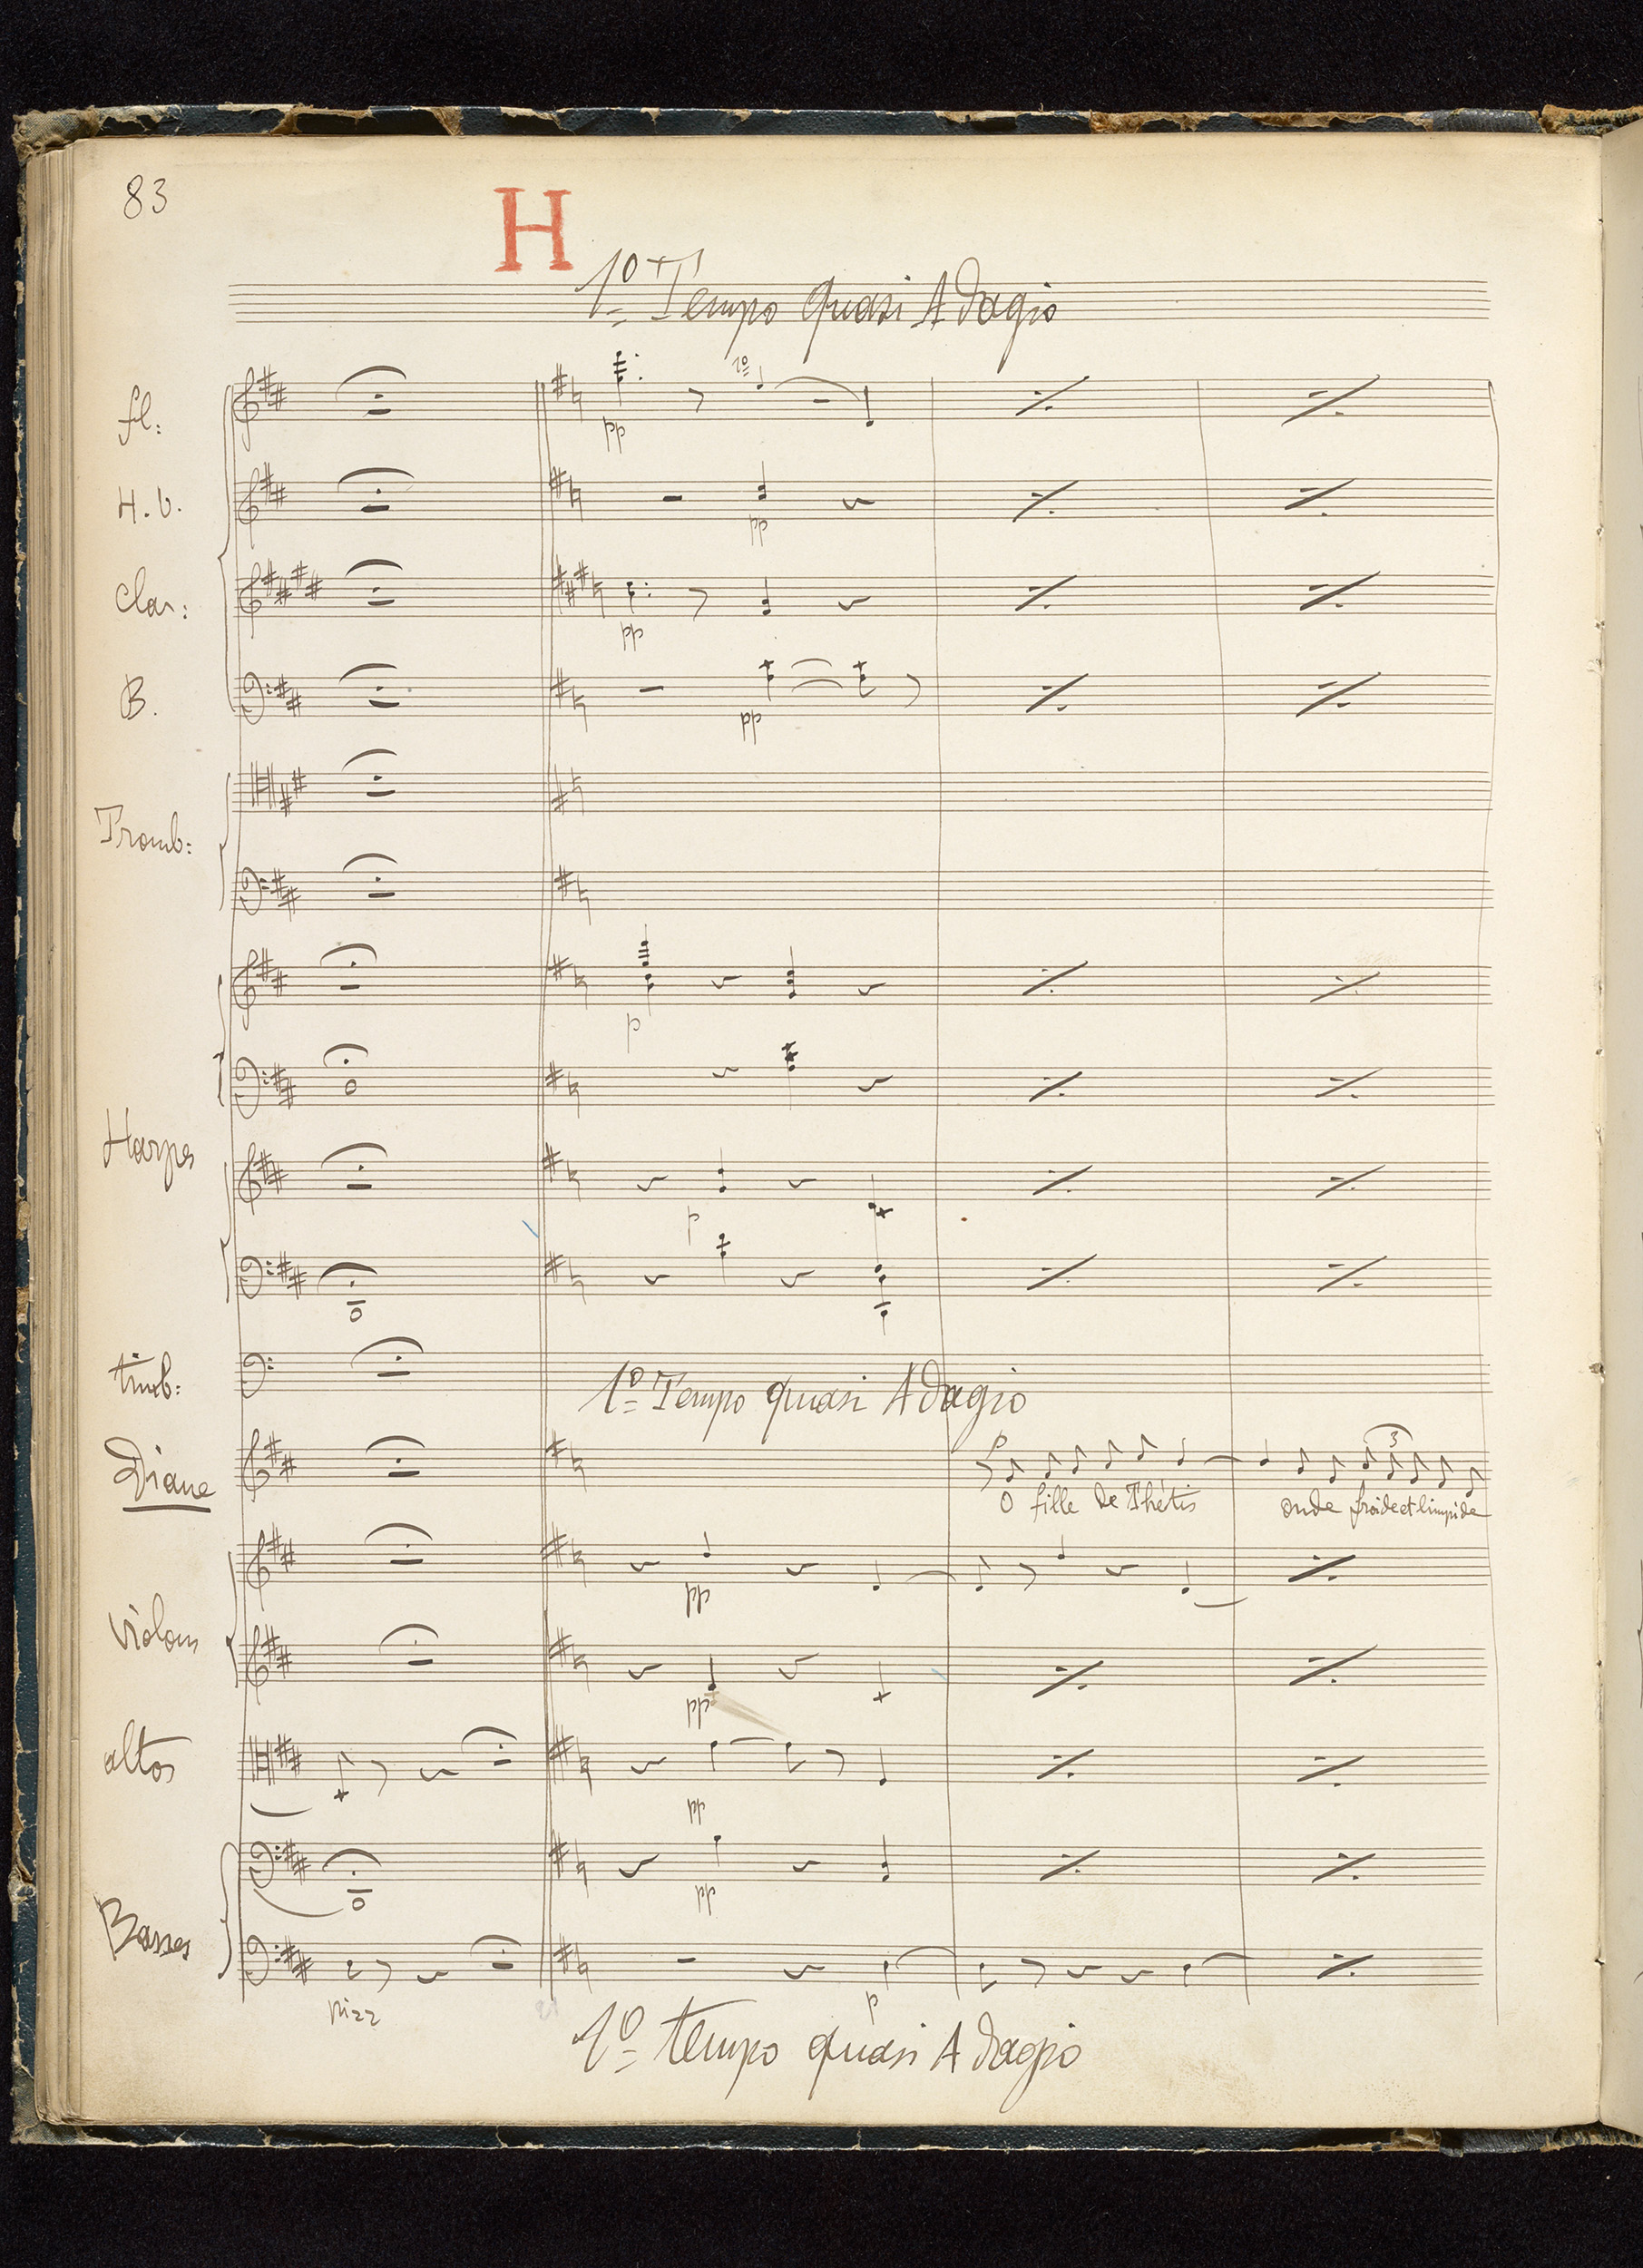 83
H
1º Tempo quasi Adagio
fl:
1º
pp
H.b.
pp
Clar:
pp
B.
pp
Tromb:
p
Harpes
p
timb:
1º Tempo quasi Adagio
Diane
p
3
O fille de Thétis onde froide et limpide
pp
Violons
pp
altos
pp
pp
Basses
pizz
p
1º tempo quasi Adagio